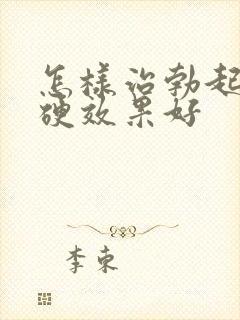 怎样治勃起
硬效果好
李东